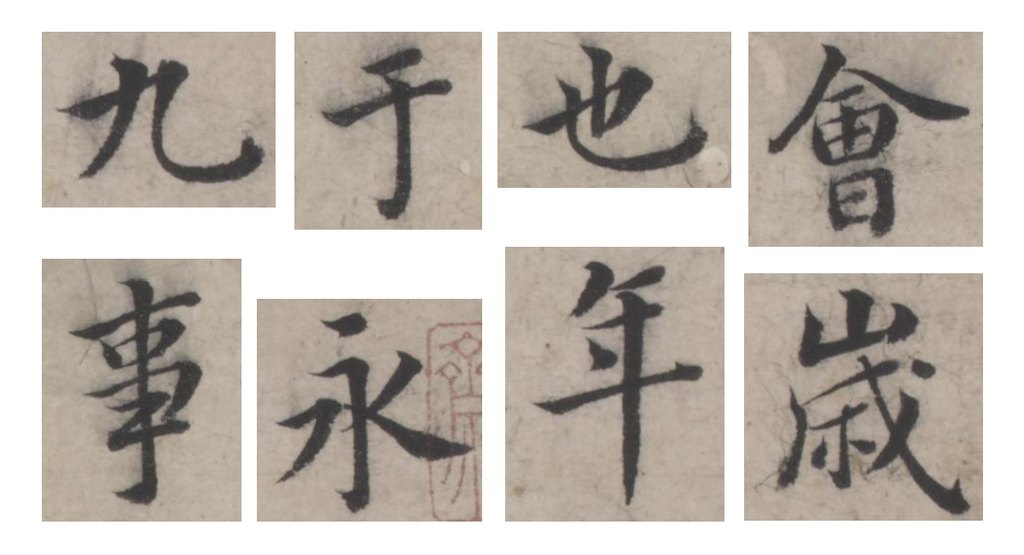 九于也會
事永年歲